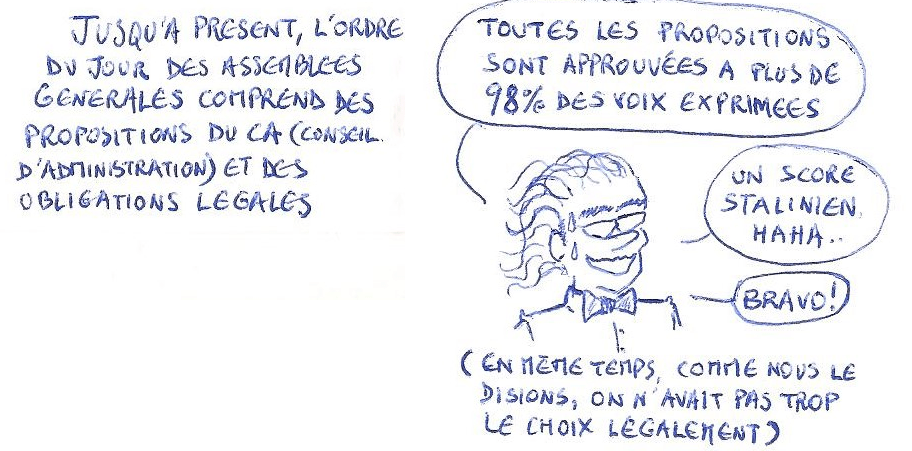 JUSQU'A PRESENT, L'ORDRE
DU JOUR DES ASSEMBLEES
GENERALES COMPREND DES
PROPOSITIONS DU CA (CONSEIL
D'ADMINISTRATION) ET DES
OBLIGATIONS LEGALES
TOUTES LES PROPOSITIONS
SONT APPROUVÉES A PLUS DE
98% DES VOIX EXPRIMEES
UN SCORE
STALINIEN
HAHA..
BRAVO!
(EN MÊME TEMPS, COMME NOUS LE
DISIONS, ON N'AVAIT PAS TROP
LE CHOIX LÉGALEMENT)